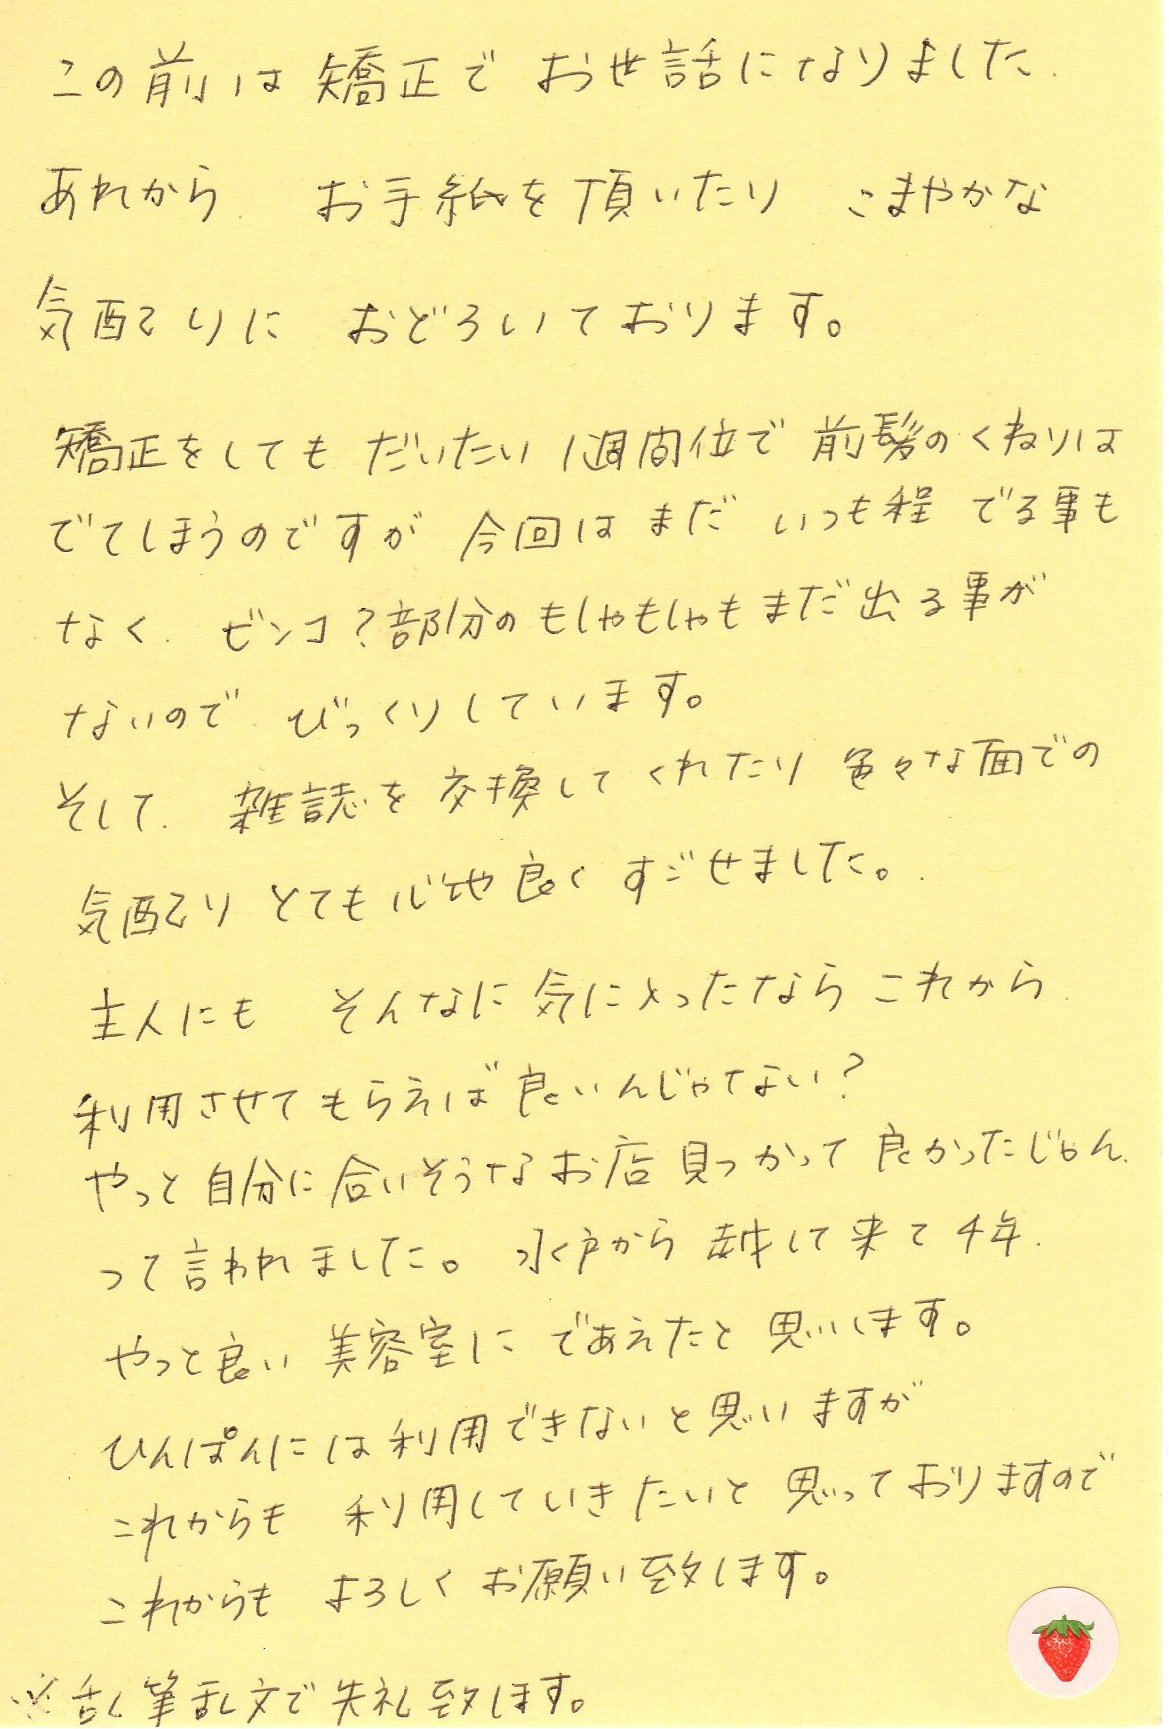 この前は矯正で お世話になりました.
あれから. お手紙を頂いたり こまやかな
気配りに おどろいております。
矯正をしても だいたい1週間位で前髪のくねりは
でてしまうのですが 今回はまだ いつも程 でる事も
なく. ビンコ?部分のもしゃもしゃもまだ出る事が
ないので. びっくりしています。
そして. 雑誌を交換してくれたり 色々な面での
気配り とても心地良くすごせました。.
主人にも そんなに気に入ったなら これから.
利用させてもらえば良いんじゃない?
やっと自分に合いそうなお店見つかって良かったじゃん.
って言われました。 水戸から越して来て4年.
やっと良い美容室に であえたと思います。
ひんぱんには利用できないと思いますが
これからも 利用していきたいと思っておりますので
これからも よろしくお願い致します。
※乱筆乱文で失礼致します。